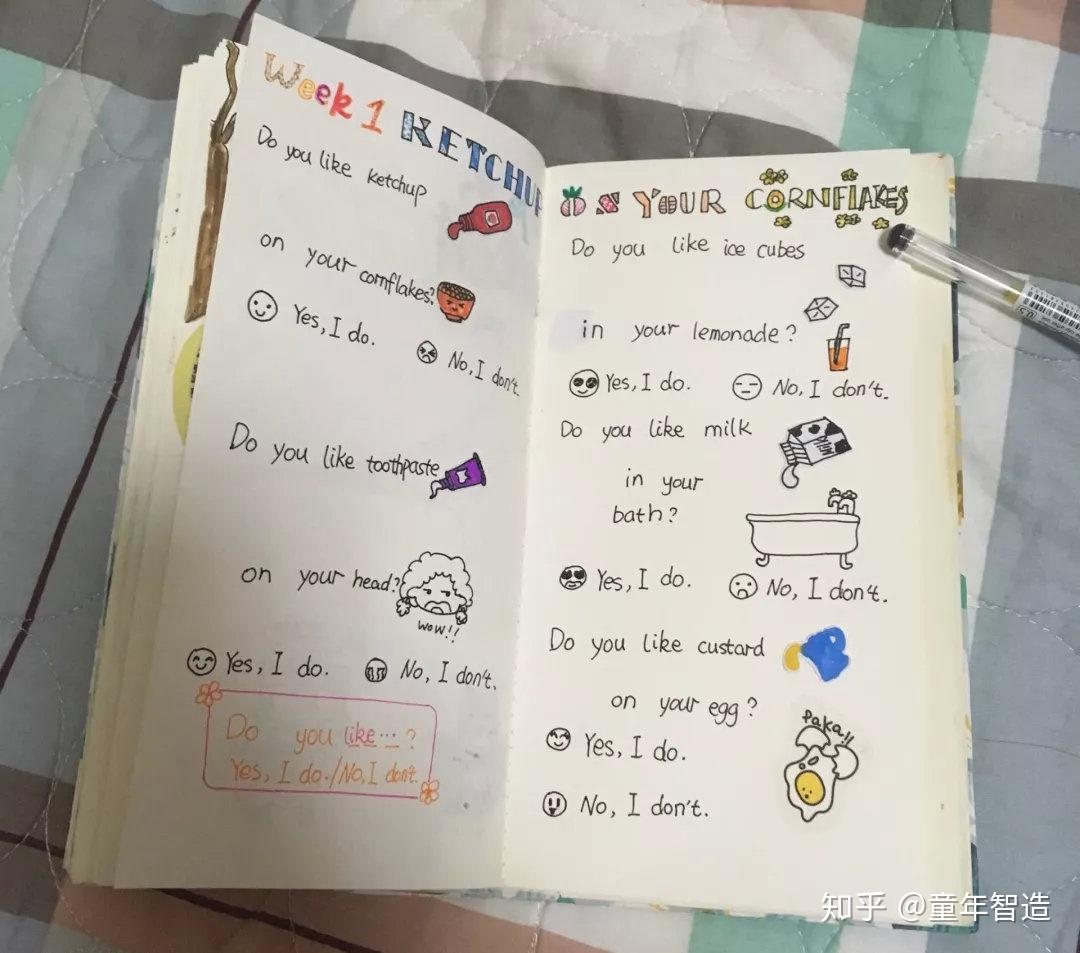 Week 1 KETCHUP
Do you like ketchup
on your cornflakes?
Yes, I do.
No, I don't.
Do you like toothpaste
on your head?
WOW!!
Yes, I do.
No, I don't.
Do you like...?
Yes, I do./No, I don't.
ON YOUR CORNFLAKES
Do you like ice cubes
in your lemonade?
Yes, I do.
No, I don't.
Do you like milk
in your
bath?
Yes, I do.
No, I don't.
Do you like custard
on your egg?
Paka!!
Yes, I do.
No, I don't.
知乎 @童年智造